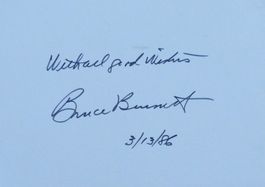 With all good wishes
Bruce Bennett
3/13/86